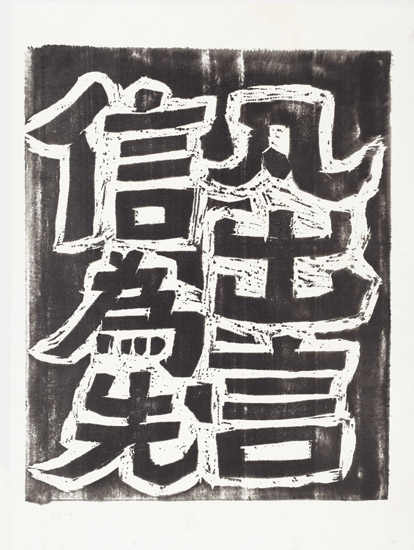 凡出言
信為先